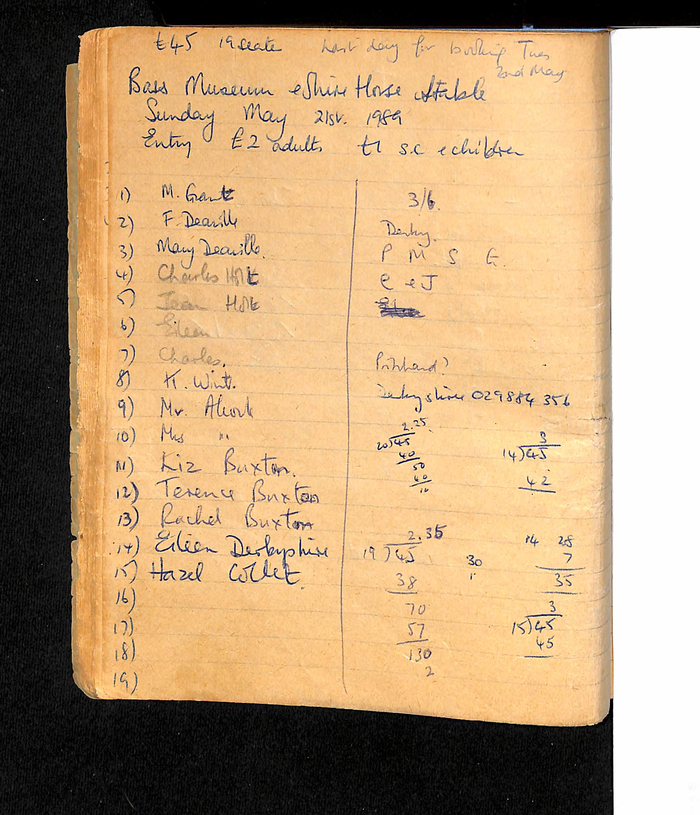 £45 19 seats Last day for booking Tues
2nd May
Bass Museum & Shire Horse Stable
Sunday May 21st. 1989
Entry £2 adults £1 s.c & children
1) M. Grant 3/6
2) F. Deaville Derby.
3) Mary Deaville. P M S G.
4) Charles Holt C & J
5) Jean Holt
6) Eileen
7) Charles. Pritchard?
8) K. Wint. Derbyshire 029884 356
9) Mr. Alcock
10) Mrs "
11) Kiz Buxton.
12) Terence Buxton
13) Rachel Buxton
14) Eileen Derbyshire
15) Hazel Collet
16)
17)
18)
19)
2.25
20)45
40
50
40
10
3
14)45
42
2.35
19)45
38
70
57
130
2
30
14 28
7
35
3
15)45
45